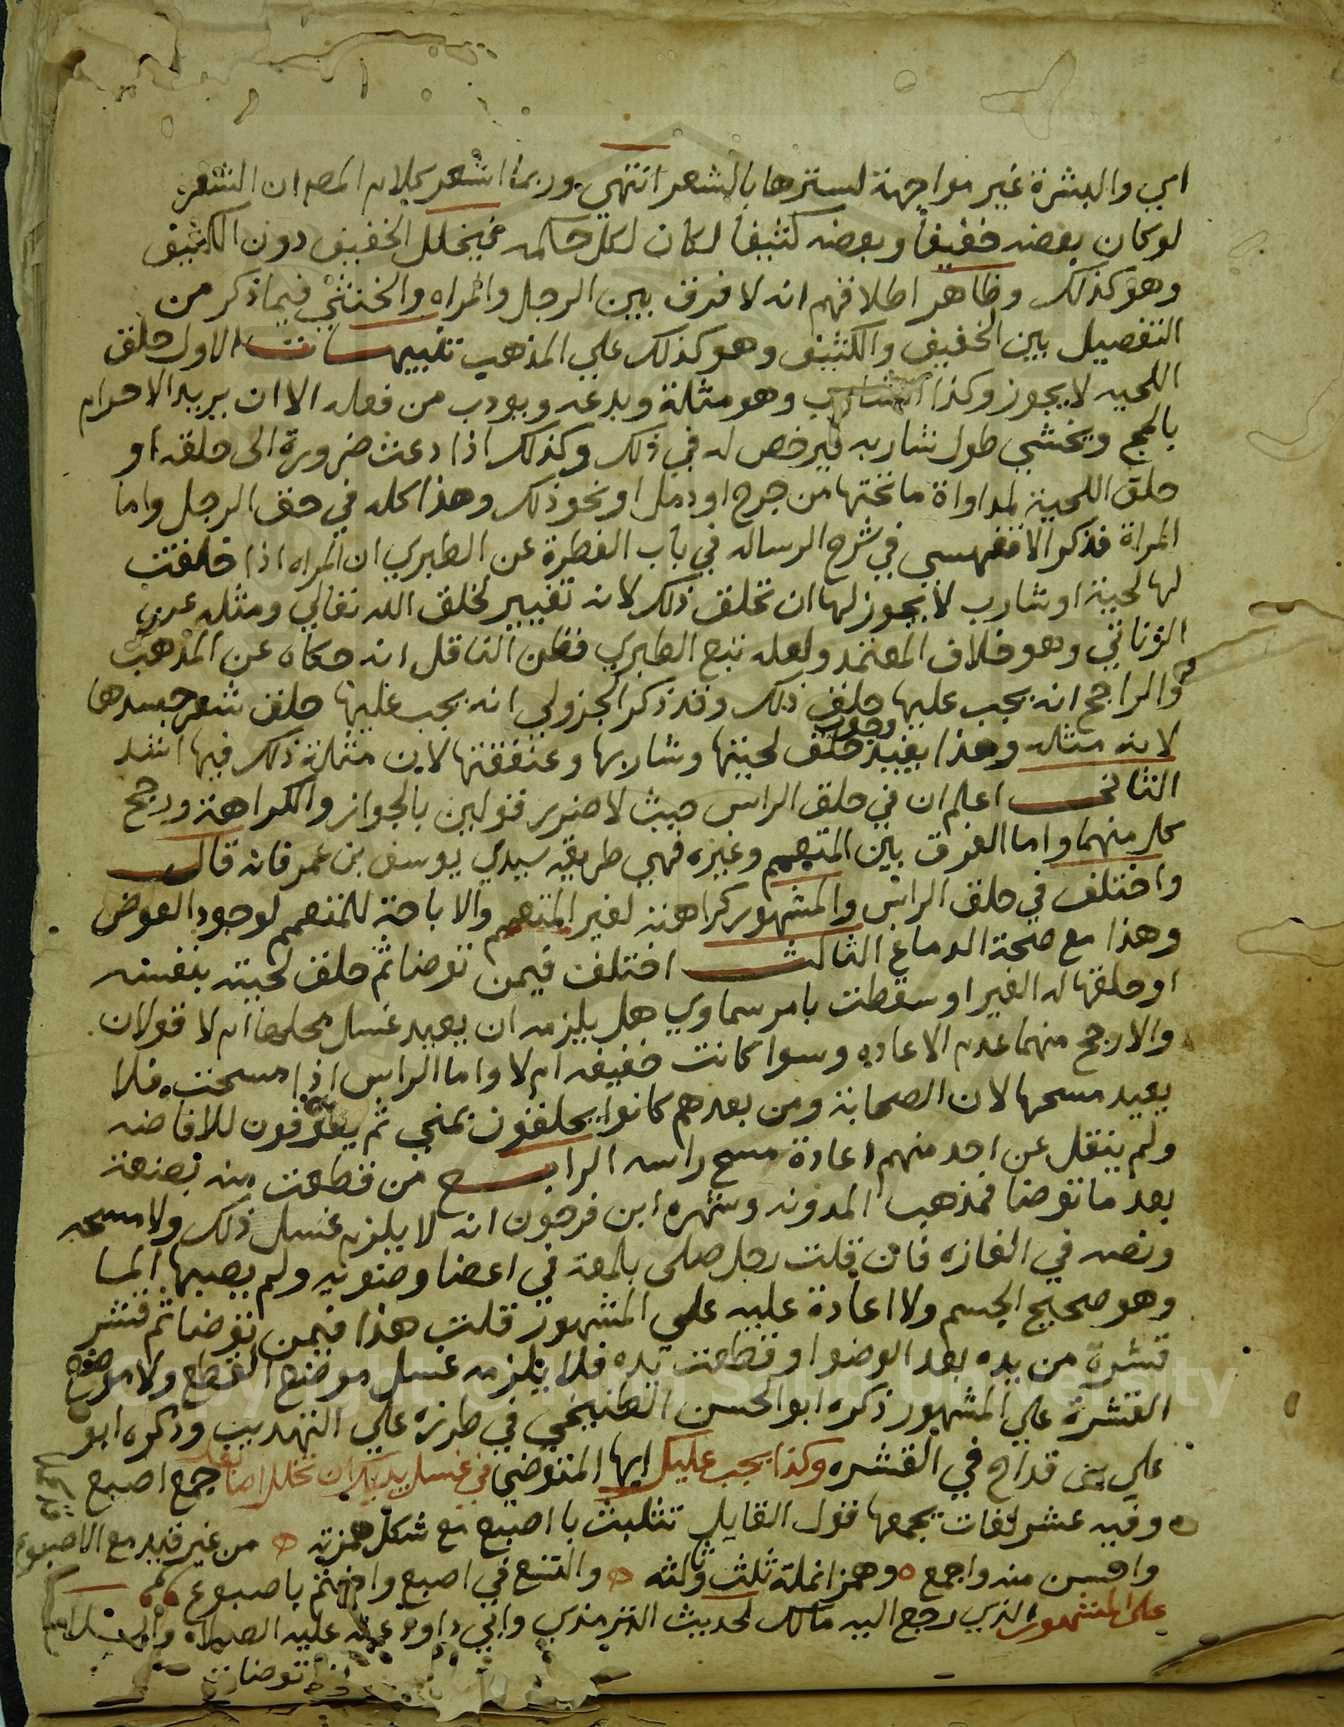 اي والبشرة غير مواجهة لسترها بالشعر انتهى وربما اشعر كلام المص ان الشعر
لو كان بعضه خفيفا وبعضه كثيفا لكان لكل حكمه فيخلل الخفيف دون الكثيف
وهو كذلك وظاهر اطلاقهم انه لا فرق بين الرجل والمراه والخنثي فيما ذكر من
التفصيل بين الخفيف والكثيف وهو كذلك علي المذهب تنبيهات الاول حلق
اللحيه لا يجوز وكذا الشارب وهو مثلة وبدعه ويودب من فعله الا ان يريد الاحرام
بالحج ويخشي طول شاربه فيرخص له في ذلك وكذلك اذا دعت ضرورة الى حلقه او
حلق اللحية لمداواة ما تحتها من جرح او دمل او نحو ذلك وهذا كله في حق الرجل واما
المراة فذكر الاقفهسي في شرح الرساله في باب الفطرة عن الطبري ان المراه اذا خلقت
لها لحية او شارب لا يجوز لها ان تحلق ذلك لانه تغيير لخلق الله تعالي ومثله عن
الزناتي وهو خلاف المعتمد ولعله تبع الطبري فظن الناقل انه حكاه عن المذهب
والراجح انه يجب عليها حلق ذلك وقد ذكر الجزولي انه يجب عليها حلق شعر جسدها
لانه مثله وهذا يفيد وجوب حلق لحيتها وشاربها وعنفقتها لان مثلة ذلك فيها اشد
الثاني اعلم ان في حلق الراس حيث لا ضرر قولين بالجواز والكراهة ورجح
كل منهما واما الفرق بين المتعمم وغيره فهي طريقه سيدي يوسف بن عمر فانه قال
واختلف في حلق الراس والمشهور كراهته لغير المتعمم والاباحة للمتعمم لوجود العوض
وهذا مع صحة الدماغ الثالث اختلف فيمن توضا ثم حلق لحيته بنفسه
او حلقها له الغير او سقطت بامر سماوي هل يلزمه ان يعيد غسل محلها ام لا قولان
والارجح منهما عدم الاعاده وسوا كانت خفيفه ام لا واما الراس اذا مسحت فلا
يعيد مسحها لان الصحابة ومن بعدهم كانوا يحلقون بمني ثم للافاضه
ولم ينقل عن احد منهم اعادة مسح راسه الرابع من قطعت منه بضعة
بعد ما توضا فمذهب المدونه وشهره ابن فرحون انه لا يلزم غسل ذلك ولا مسحه
ونصه في الغازه فان قلت رجل صلى بلمعة في اعضا وضوئه ولم يصبها الما
وهو صحيح الجسم ولا اعادة عليه علي المشهور قلت هذا فيمن توضا ثم قشر
قشرة من يده بعد الوضوا وقطعت يده فلا يلزمه غسل موضع القطع ولا موضع
القشرة علي المشهور ذكره ابو الحسن الطنجي في طرره علي التهذيب وذكره ابو
علي بن قداح في القشره وكذا يجب عليك ايها المتوضي في غسل يديك ان تخلل اصابعك جمع اصبع
وفيه عشر لغات يجمعها قول القايل تثليث با اصبع مع شكل همزته من غير قيد مع الاصبوع
واحسن منه واجمع وهمز انملة ثلث وثالثه والتسع في اصبع واختم باصبوع
على المشهور الذي رجع اليه مالك لحديث الترمذي وابي داود عنه عليه الصلاه والسلام
اذا توضات